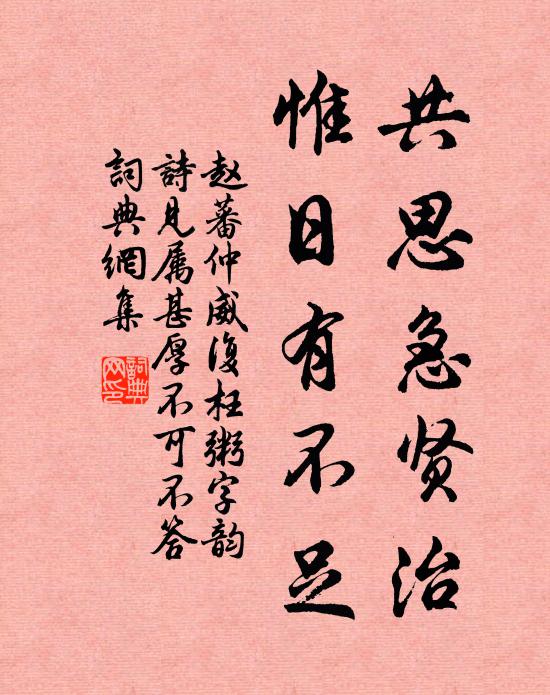 共思急贤治
惟日有不足
赵蕃仲威復枉粥字韵
詩見属甚厚不可不答
詞典網集
詞典網印